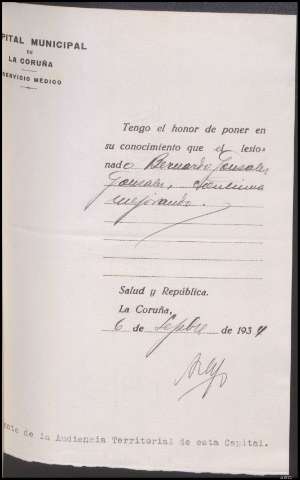 PITAL MUNICIPAL
DE
LA CORUÑA
SERVICIO MÉDICO
Tengo el honor de poner en
su conocimiento que el lesio-
nado Bernardo Gonsales
Gonsales, continua
mejorando.
Salud y República.
La Coruña,
6 de Sepbre de 1934
nte de la Audiencia Territorial de esta Capital.